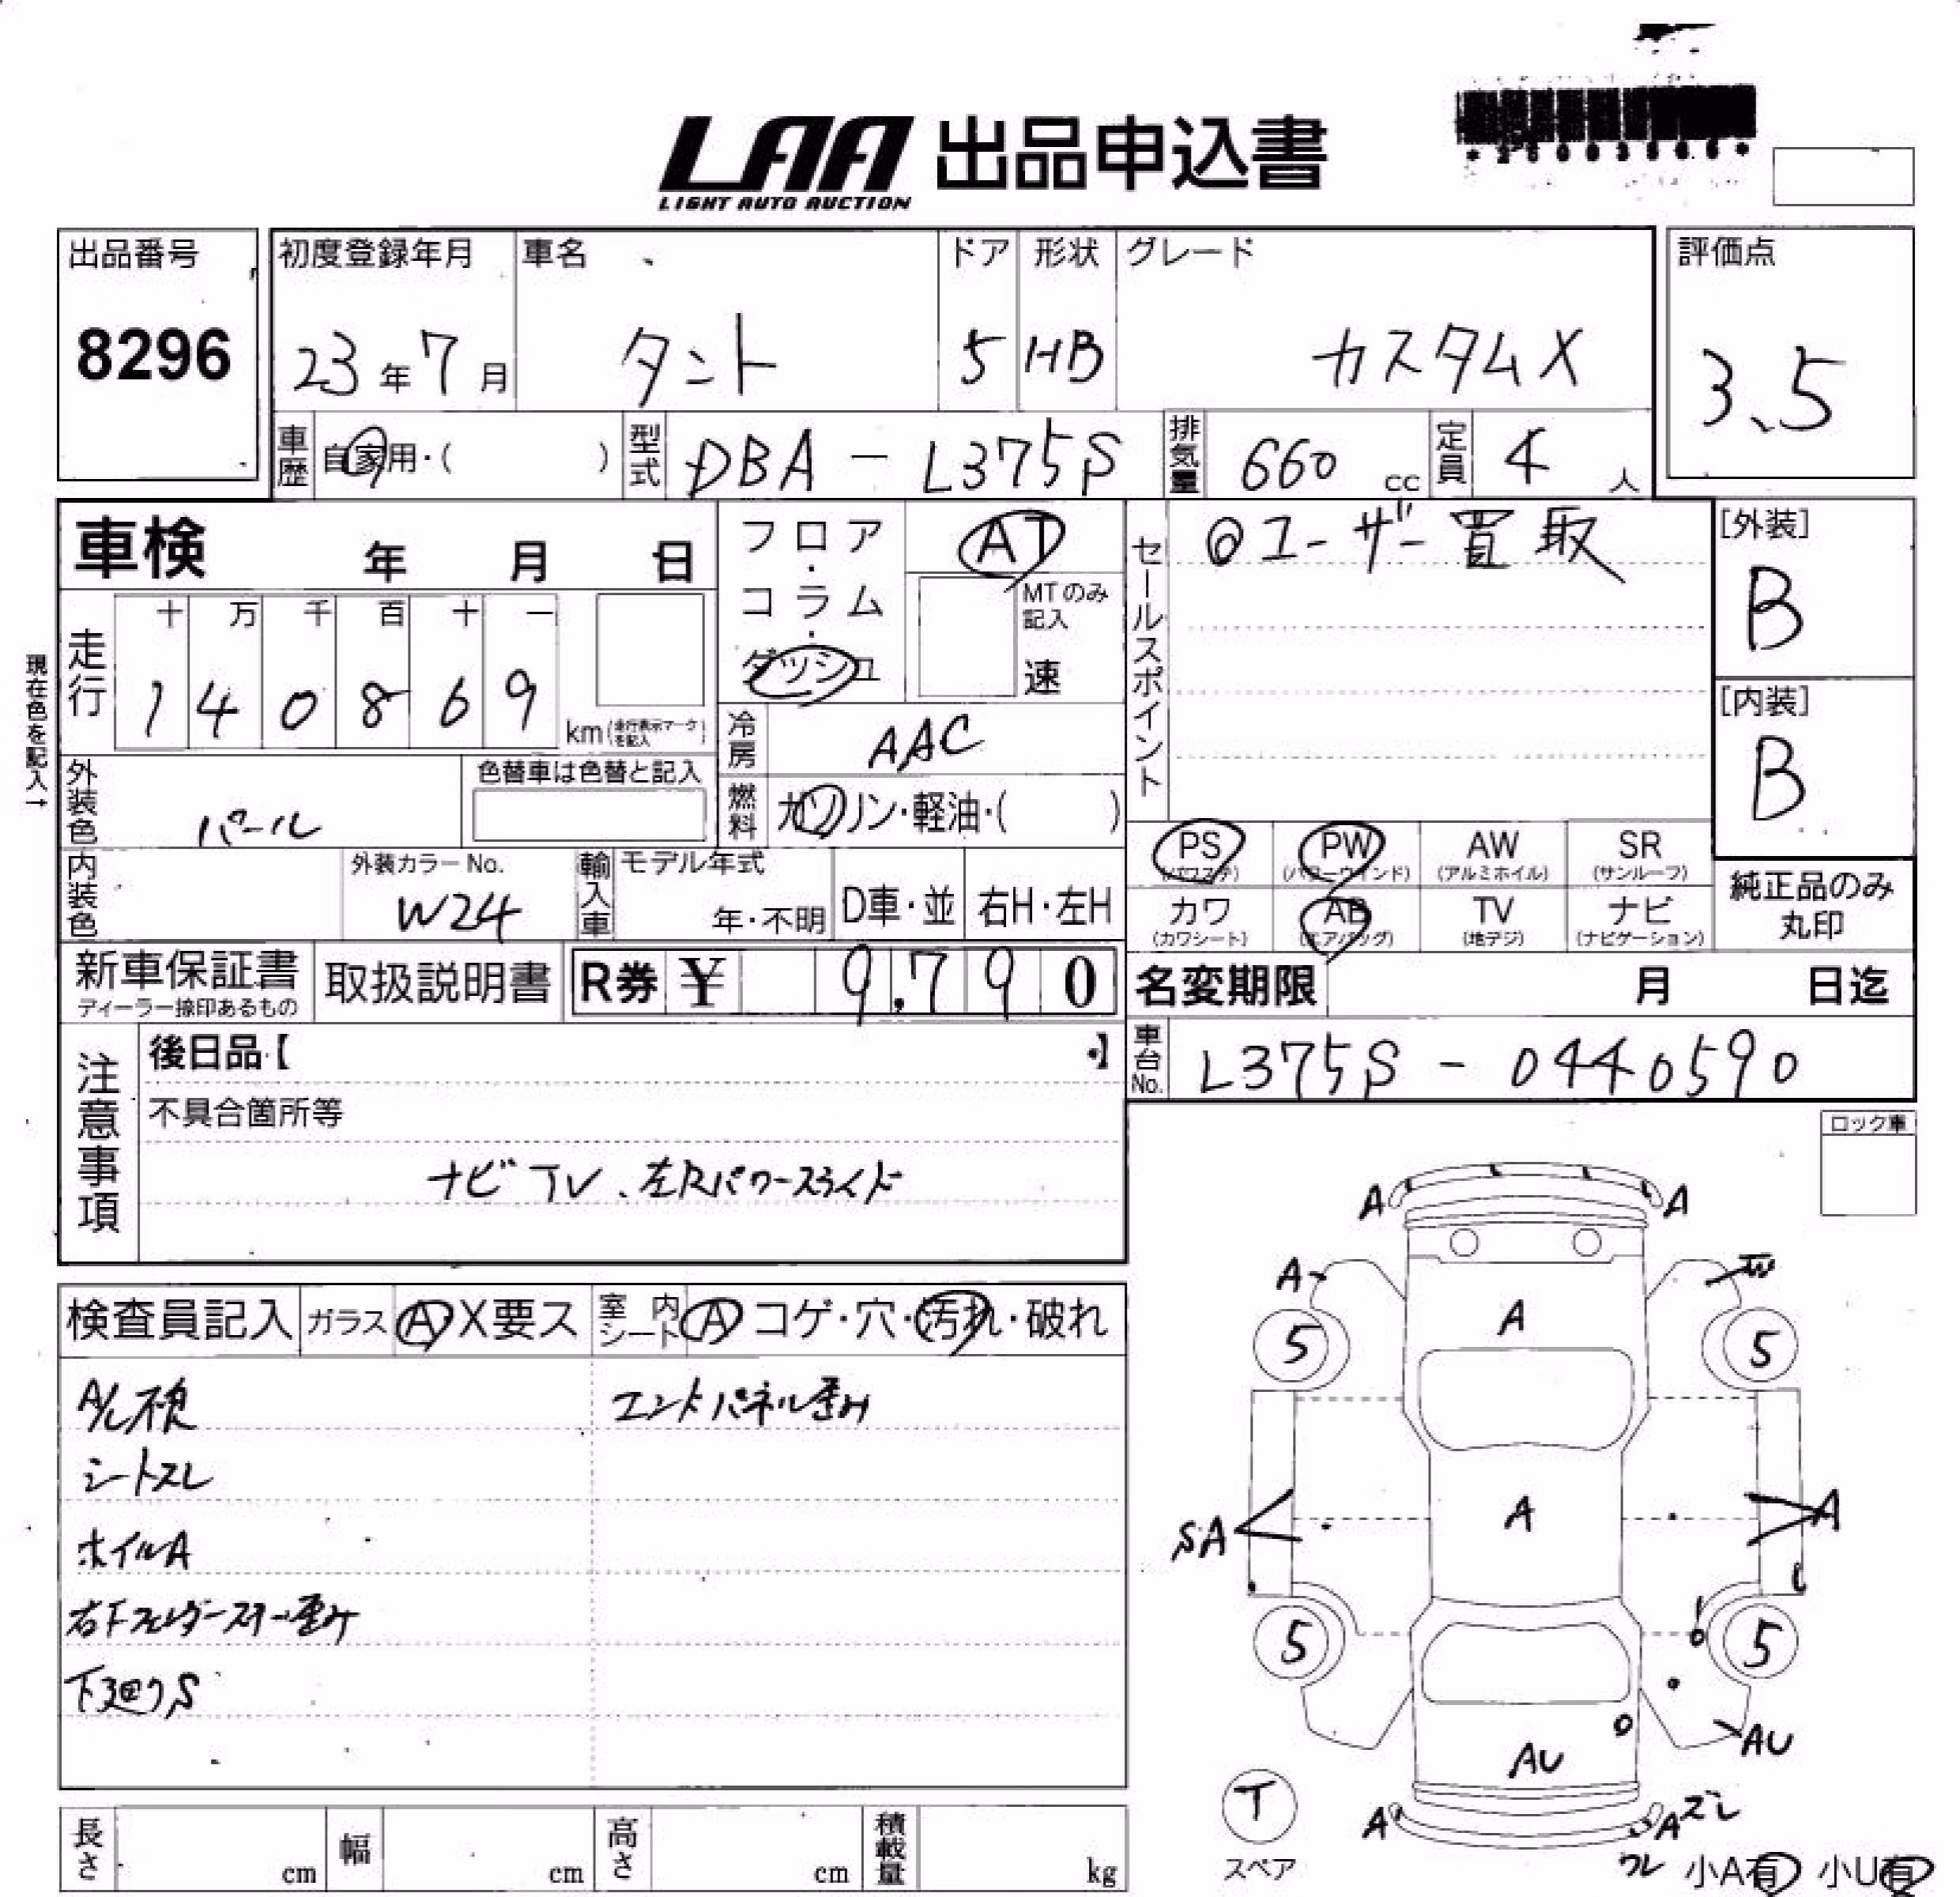 LAA 出品申込書
LIGHT AUTO AUCTION
出品番号
8296
初度登録年月
23年7月
車名
タント
ドア
5
形状
HB
グレード
カスタムX
評価点
3.5
車歴 自家用・( )
型式 DBA-L375S
排気量 660 cc
定員 4人
車検 年 月 日
フロア・コラム・ダッシュ
AT
MTのみ記入
速
セールスポイント
◎ユーザー買取
[外装]
B
[内装]
B
現在色を記入→
走行
十 万 千 百 十 一
1 4 0 8 6 9
km(走行表示マークを記入)
冷房 AAC
燃料 ガソリン・軽油・( )
外装色 パール
色替車は色替と記入
内装色
外装カラーNo.
W24
輸入車
モデル年式
年・不明
D車・並
右H・左H
PS (パワステ)
PW (パワーウインド)
AW (アルミホイル)
SR (サンルーフ)
カワ (カワシート)
AB (エアバッグ)
TV (地デジ)
ナビ (ナビゲーション)
純正品のみ
丸印
新車保証書
ディーラー捺印あるもの
取扱説明書
R券 ¥ 9,790
名変期限 月 日迄
車台No. L375S-0440590
注意事項
後日品【 】
不具合箇所等
ナビTV、左Rパワースライド
ロック車
検査員記入
ガラス A X要ス
室内シート A コゲ・穴・汚れ・破れ
シートスレ
ホイルA
下廻りS
エンドパネル歪み
A A
A
A
5 5
A
SA A
5 5
AU
AU
T
スペア
A
A ズレ
ワレ
小A有 小U有
長さ cm
幅 cm
高さ cm
積載量 kg